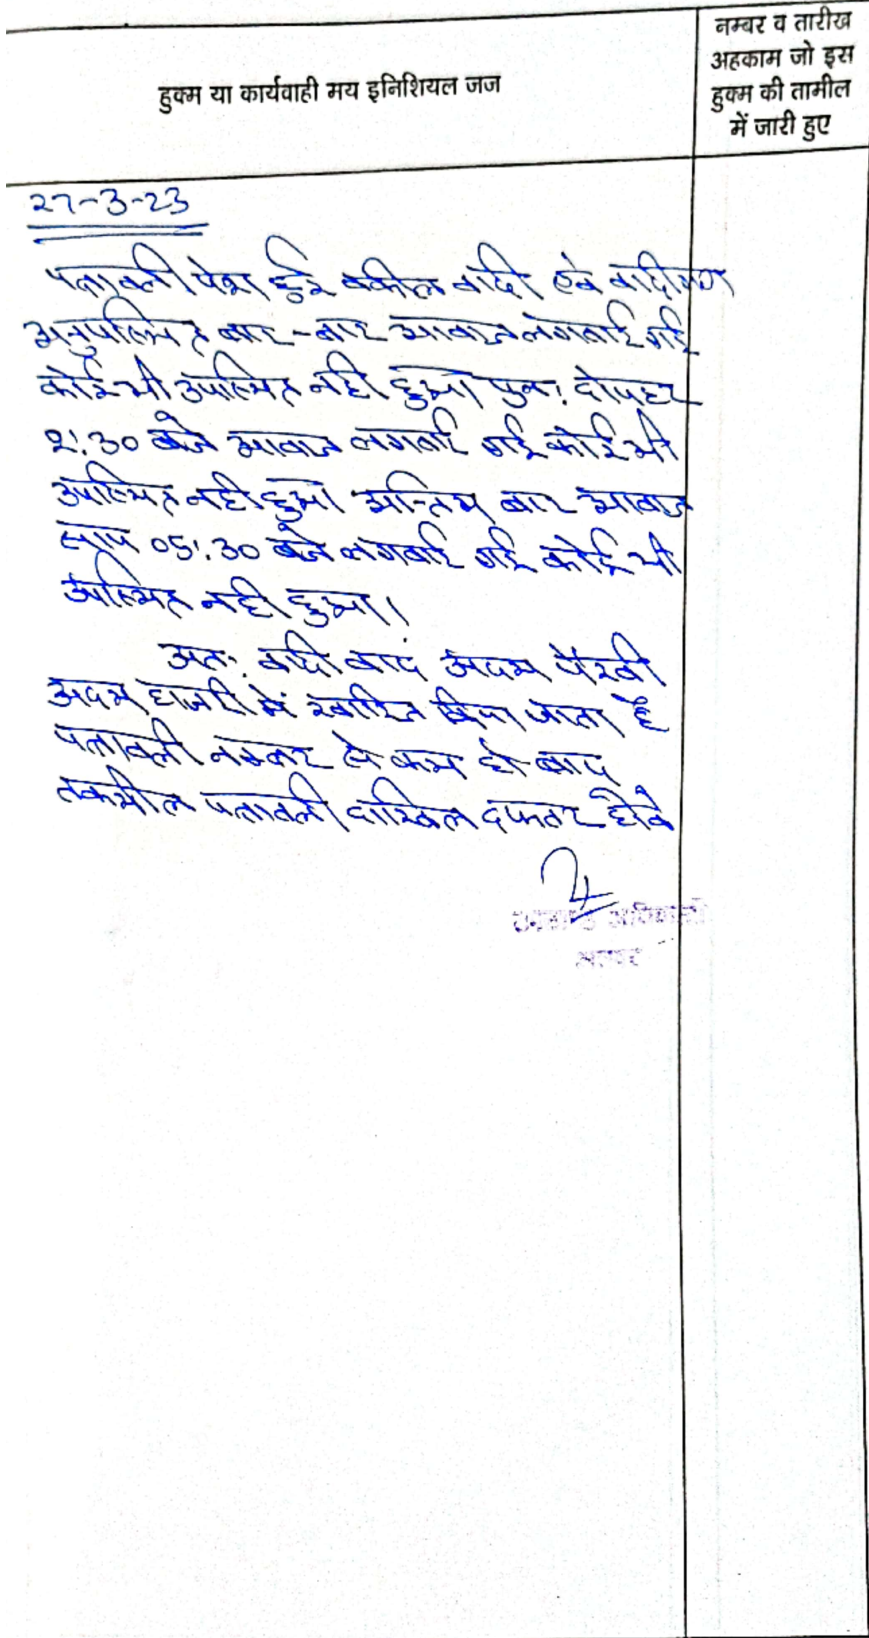 हुक्म या कार्यवाही मय इनिशियल जज
नम्बर व तारीख
अहकाम जो इस
हुक्म की तामील
में जारी हुए
27-3-23
पत्रावली पेश हुई वकील वादी एवं वादीगण
अनुपस्थित बार-बार आवाज लगवाई गई
कोई भी उपस्थित नही हुआ पुनः दोपहर
2:30 बजे आवाज लगवाई गई कोई भी
उपस्थित नही हुआ अन्तिम बार आवाज
सांय 05:30 बजे लगवाई गई कोई भी
उपस्थित नही हुआ।
अतः वादी वाद अदम पैरवी
अदम हाजरी में खारिज किया जाता है
पत्रावली नम्बर से कम हो बाद
तकमील पत्रावली दाखिल दफ्तर होवे
उपखण्ड अधिकारी